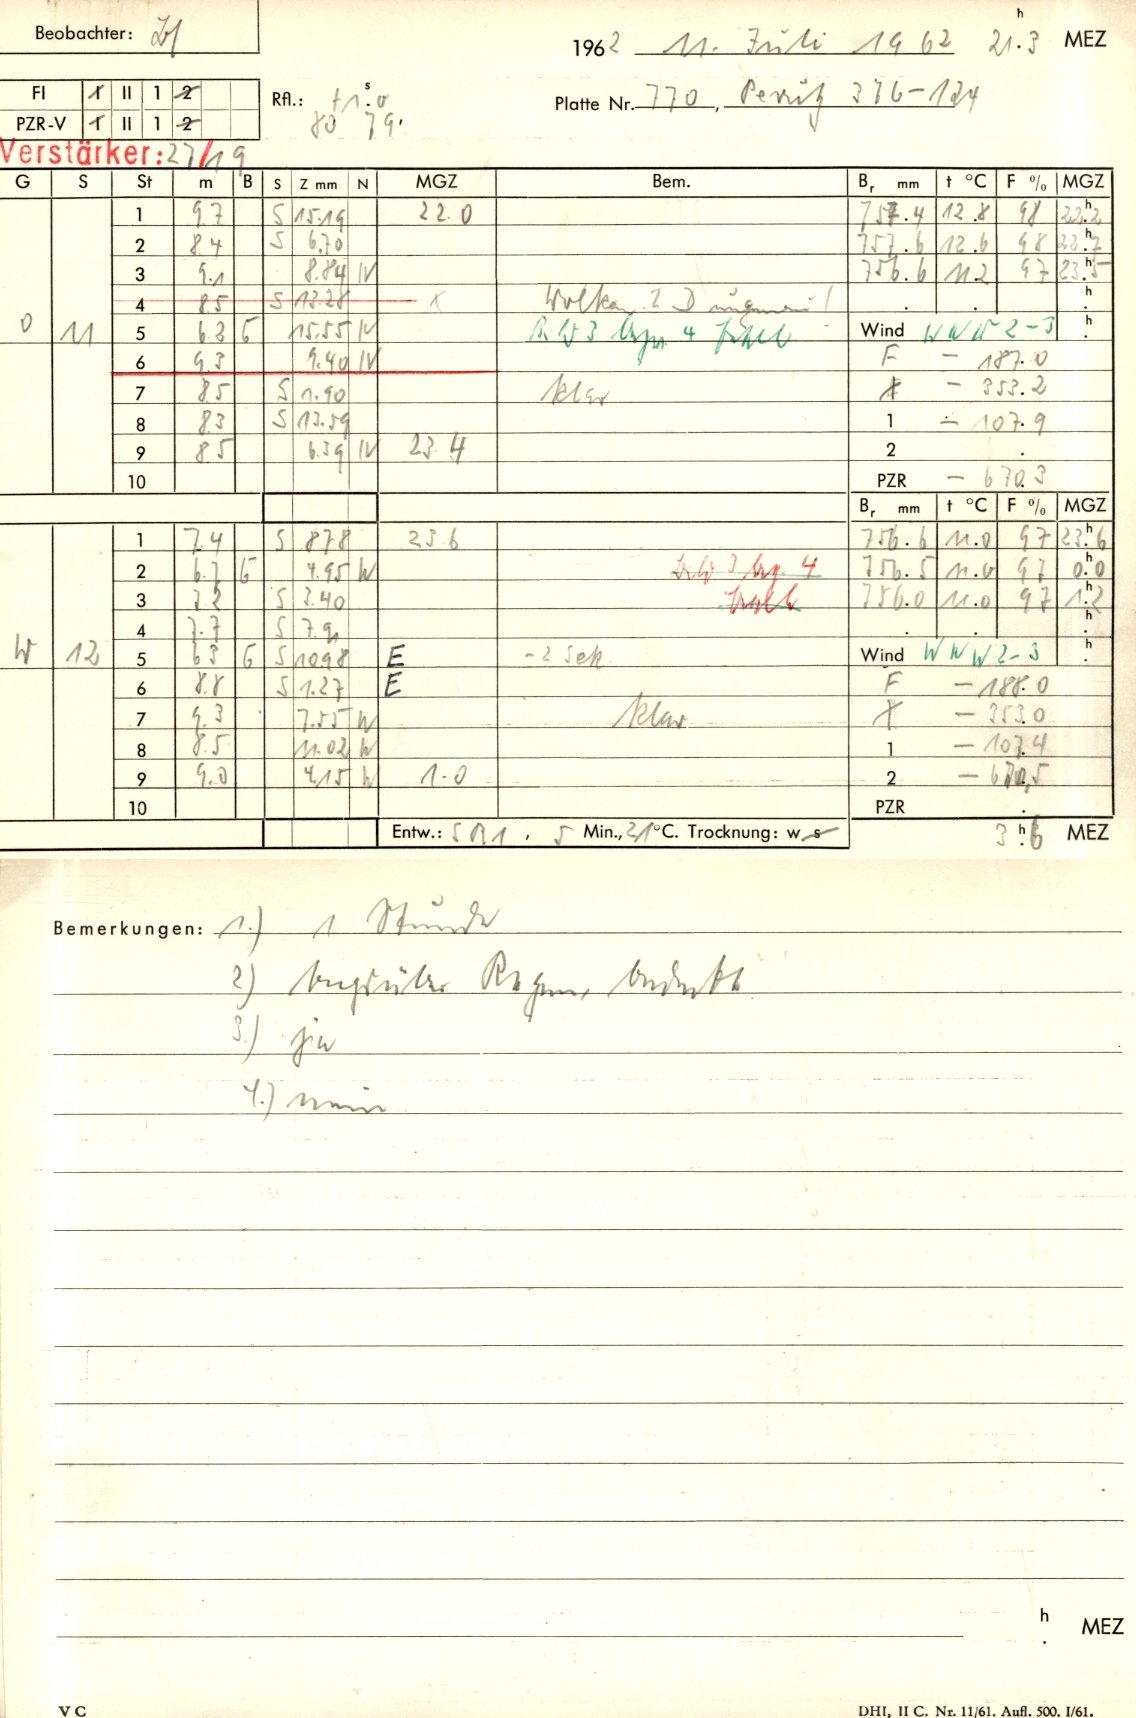 Beobachter:
1962 11. Juli 1962 21h.3 MEZ
FI 1 II 1 2
PZR-V 1 II 1 2
Rfl.: +1s.0
80 79.
Platte Nr. 770, Perutz 376-124
Verstärker: 27/19
G S St m B S Z mm N MGZ Bem. Br mm t °C F % MGZ
1 9.7 S 15.19 22.0 757.4 12.8 98 22h.2
2 8.4 S 6.70 757.6 12.6 98 22h.7
3 9.1 8.84 W 756.6 11.2 97 23h.5
4 8.5 S 13.28 x Wolken h
O 11 5 6.3 G 15.55 W Bild 3 4 Wind WNW 2-3 h
6 9.3 9.40 W F - 187.0
7 8.5 S 1.90 klar - 353.2
8 8.3 S 13.59 1 - 107.9
9 8.5 6.39 W 23.4 2 .
10 PZR - 670.3
Br mm t °C F % MGZ
1 7.4 S 8.78 23.6 756.6 11.0 97 23h.6
2 6.7 G 4.95 W Bild 3 4 756.5 11.0 97 0h.0
3 7.2 S 3.40 756.0 11.0 97 1h.2
4 7.7 S 7.91 h
W 12 5 6.3 G S 10.98 E -2 Sek. Wind WNW 2-3 h
6 8.8 S 1.27 E F - 188.0
7 9.3 7.55 W klar - 353.0
8 8.5 11.02 W 1 - 107.4
9 9.0 4.15 W 1.0 2 - 670.5
10 PZR .
Entw.: 5 Min., 21°C. Trocknung: w s 3h.6 MEZ
Bemerkungen: 1.) 1 Stunde
2) tagsüber Regen, bedeckt
3.) ja
4.) nein
h. MEZ
V C DHI, II C. Nr. 11/61. Aufl. 500. I/61.